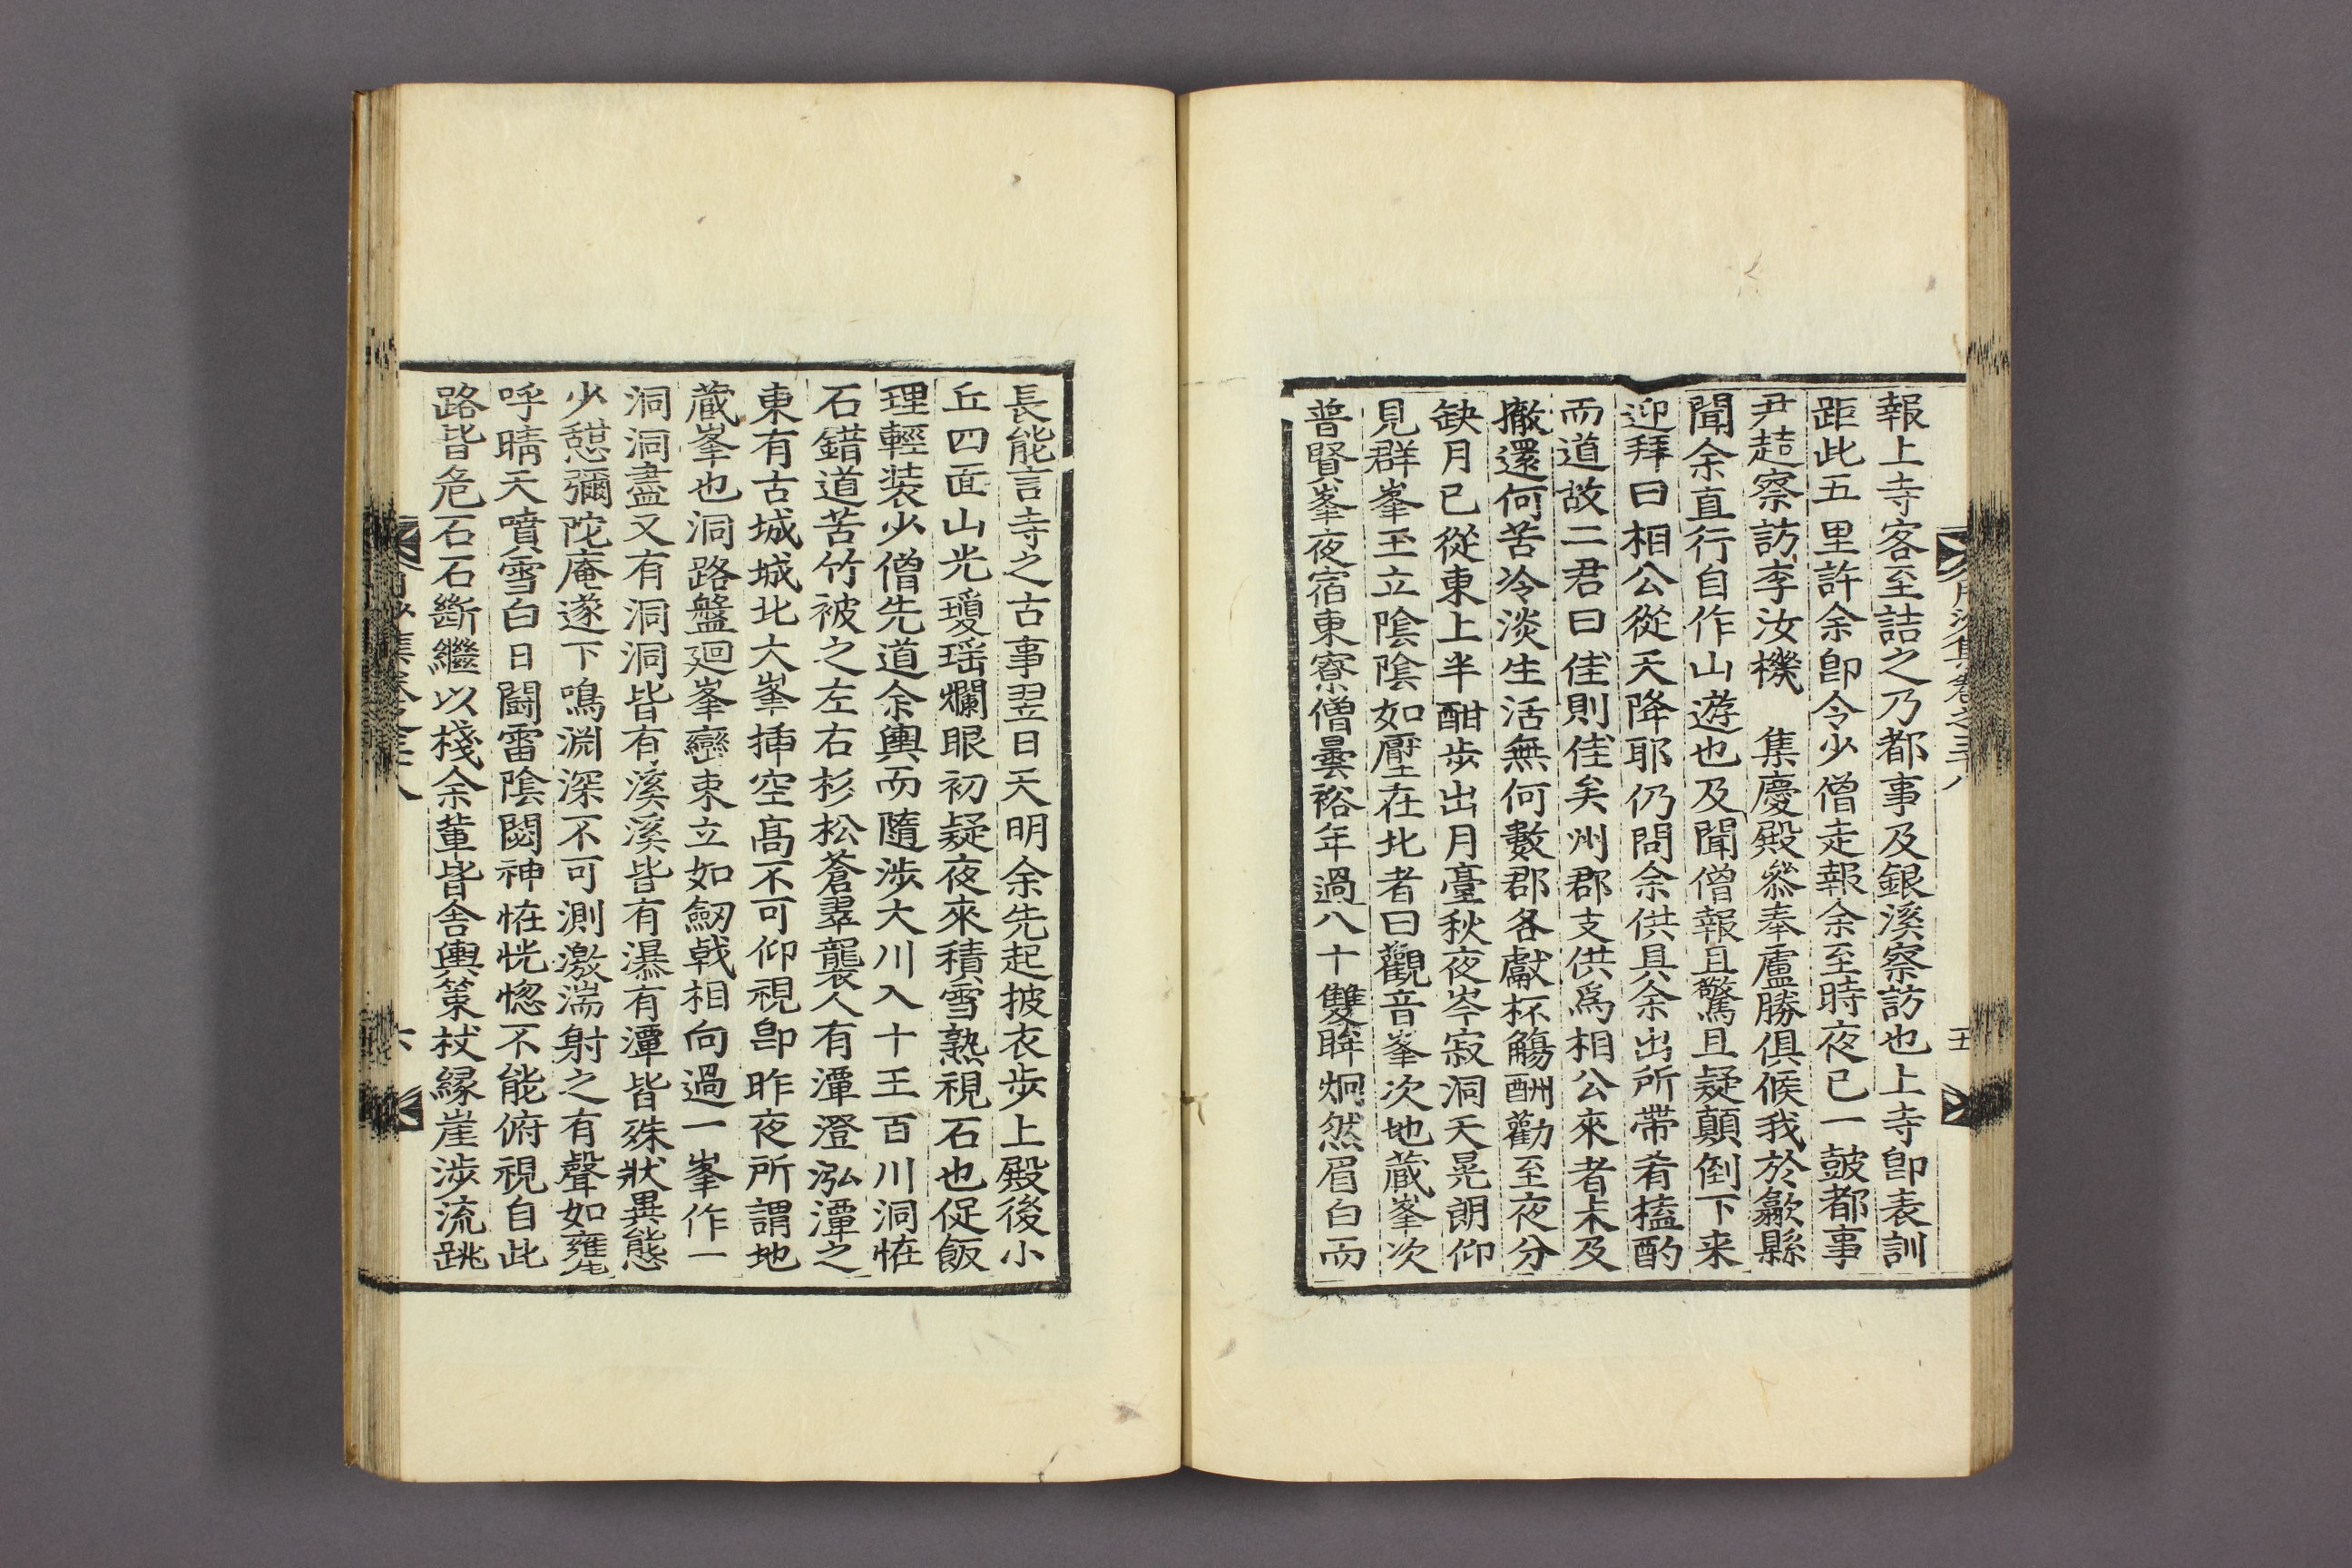 報上寺客至詰之乃都事及銀溪察訪也上寺卽表訓
距此五里許余卽令少僧走報余至時夜已一皷都事
尹趌察訪李汝機 集慶殿叅奉盧勝俱候我於歙縣
聞余直行自作山遊也及聞僧報且驚且疑顚倒下来
迎拜曰相公從天降耶仍問余供具余出所帶肴榼酌
而道故二君曰佳則佳矣州郡支供爲相公來者未及
撤還何苦冷淡生活無何數郡各獻杯觴酬勸至夜分
缺月已從東上半酣步出月臺秋夜岑寂洞天晃朗仰
見群峯玉立陰陰如壓在北者曰觀音峯次地蔵峯次
普賢峯夜宿東寮僧曇裕年過八十雙眸炯然眉白而
長能言寺之古事翌日天明余先起披衣步上殿後小
丘四面山光瓊瑶爛眼初疑夜來積雪熟視石也促飯
理輕装少僧先道余輿而隨涉大川入十王百川洞恠
石錯道苦竹被之左右杉松蒼翠襲人有潭澄泓潭之
東有古城城北大峯揷空高不可仰視卽昨夜所謂地
蔵峯也洞路盤廻峯巒束立如劒戟相向過一峯作一
洞洞盡又有洞洞皆有溪溪皆有瀑有潭皆殊狀異態
少憇彌陀庵遂下鳴淵深不可測激湍射之有聲如甕
呼晴天噴雪白日鬪雷陰閟神恠恍惚不能俯視自此
路皆危石石斷繼以棧余軰皆舍輿策杖緣崖涉流跳